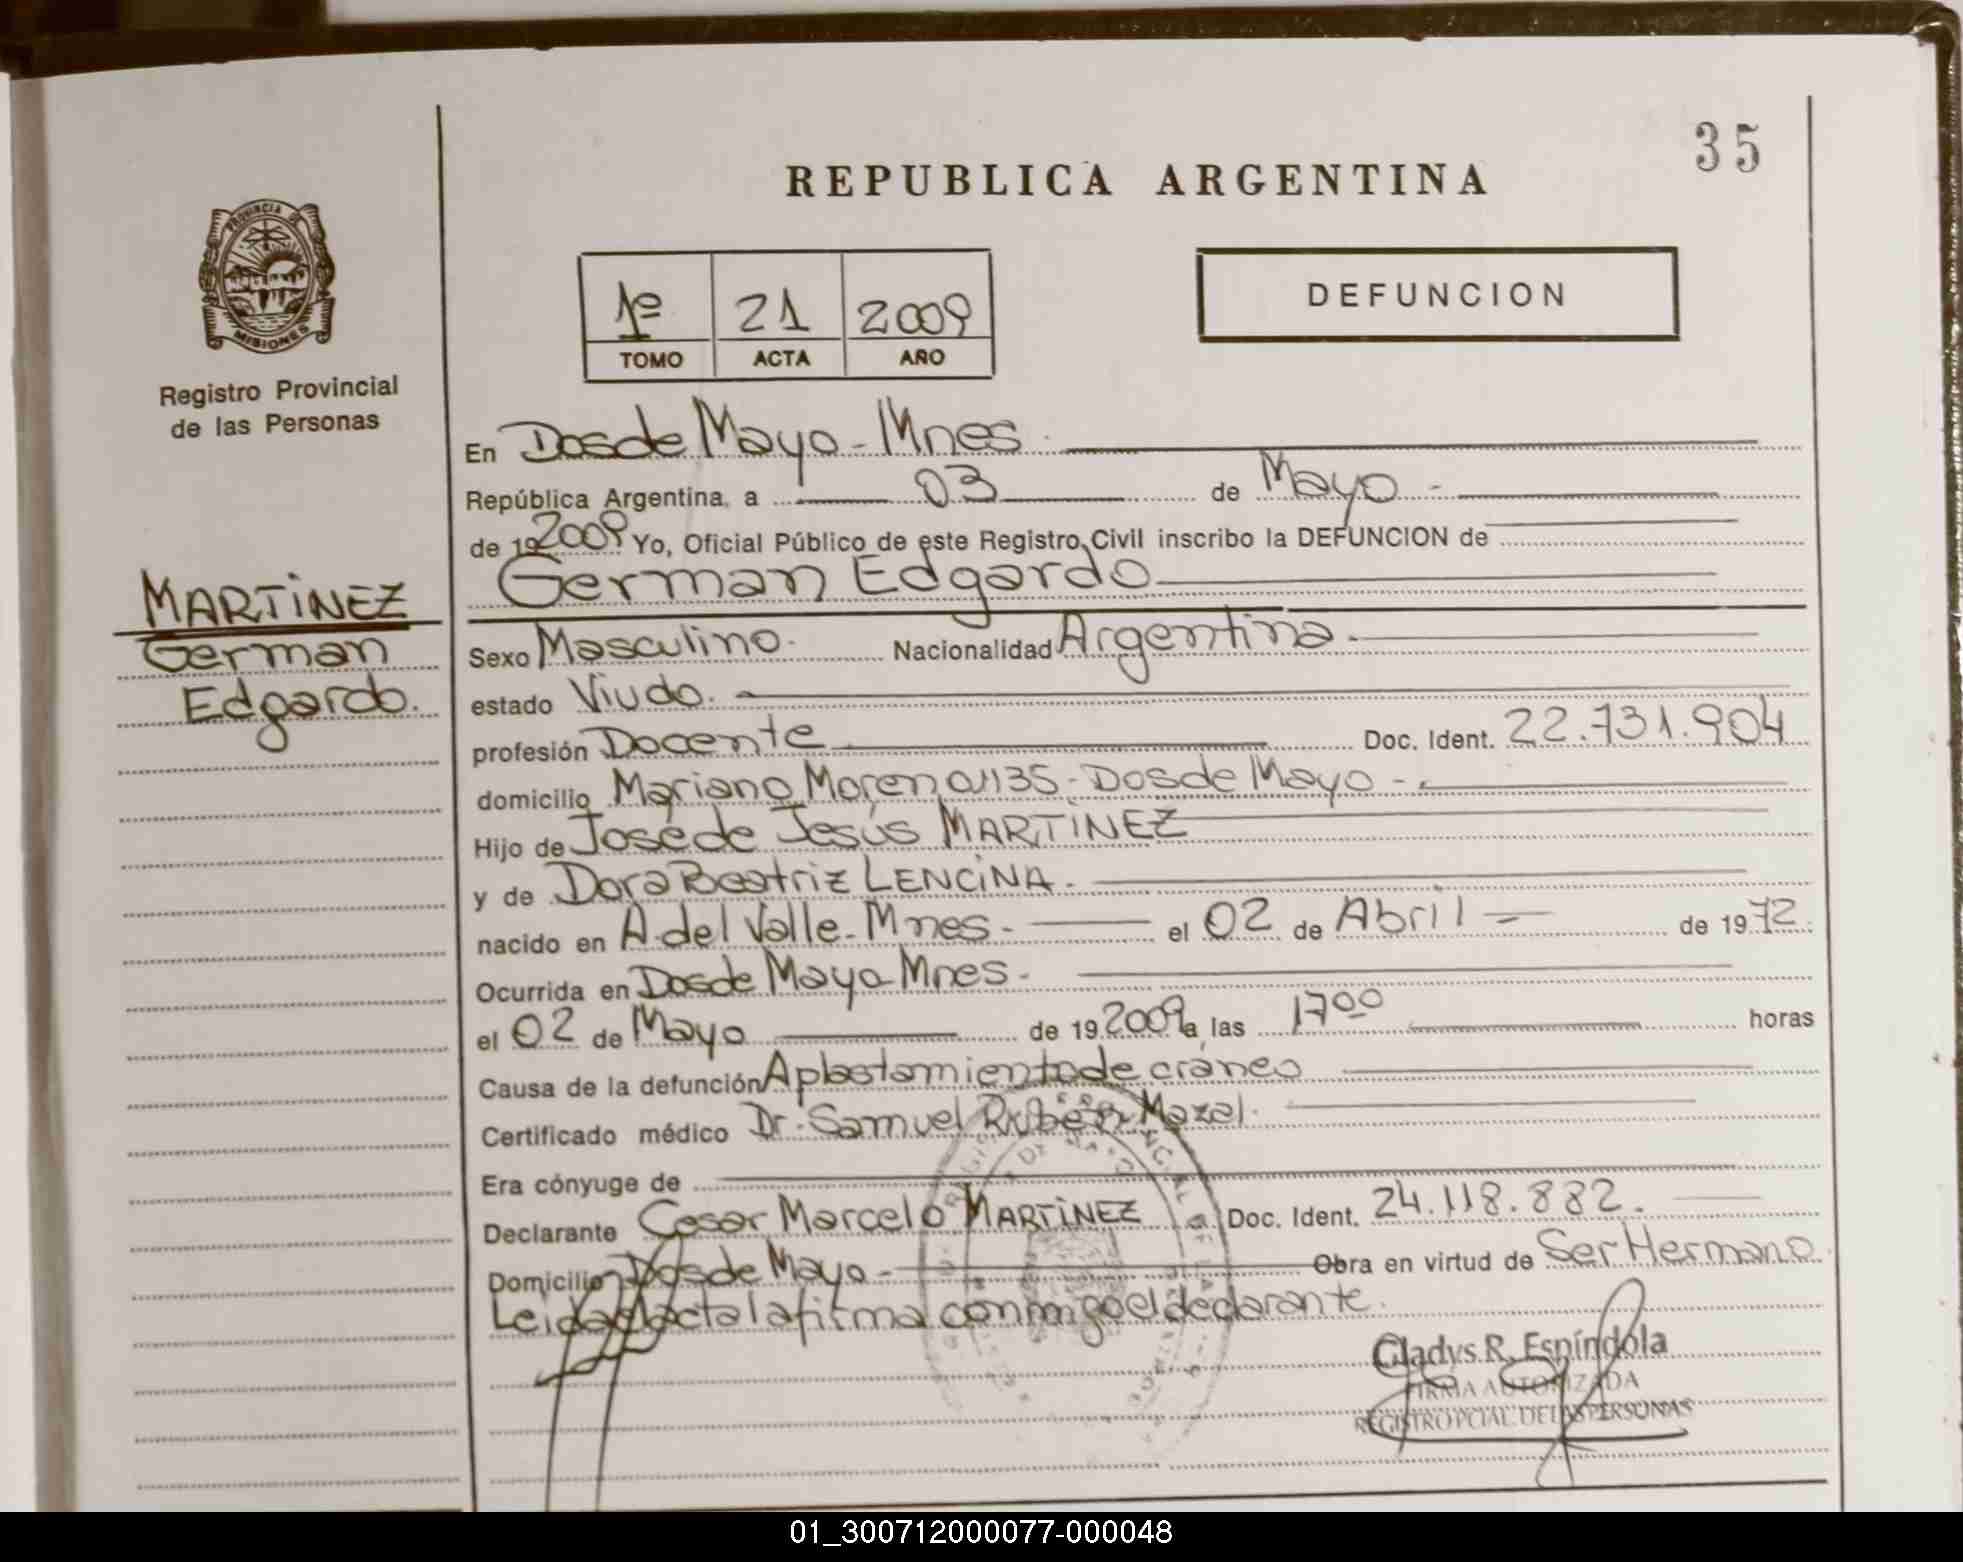 35
REPUBLICA ARGENTINA
PROVINCIA DE
MISIONES
Registro Provincial
de las Personas
1º 21 2009
TOMO ACTA AÑO
DEFUNCION
En Dos de Mayo - Mnes.
República Argentina, a 03 de Mayo -
de 192009 Yo, Oficial Público de este Registro Civil inscribo la DEFUNCION de
German Edgardo
MARTiNEZ
German
Edgardo.
Sexo Masculino. Nacionalidad Argentina.
estado Viudo.
profesión Docente Doc. Ident. 22.731.904
domicilio Mariano Moreno 1135 - Dos de Mayo -
Hijo de José de Jesús MARTINEZ
y de Dora Beatriz LENCiNA.
nacido en A. del Valle - Mnes. el 02 de Abril de 1972.
Ocurrida en Dos de Mayo Mnes.
el 02 de Mayo de 192009 a las 17⁰⁰ horas
Causa de la defunción Aplastamiento de cráneo
Certificado médico Dr. Samuel Rubén Mazal.
Era cónyuge de
Declarante Cesar Marcelo MARTiNEZ Doc. Ident. 24.118.882.
Domicilio Dos de Mayo - Obra en virtud de Ser Hermano.
Leida el acta la firma conmigo el declarante.
Gladys R. Espíndola
FIRMA AUTORIZADA
REGISTRO PCIAL. DE LAS PERSONAS
01_300712000077-000048